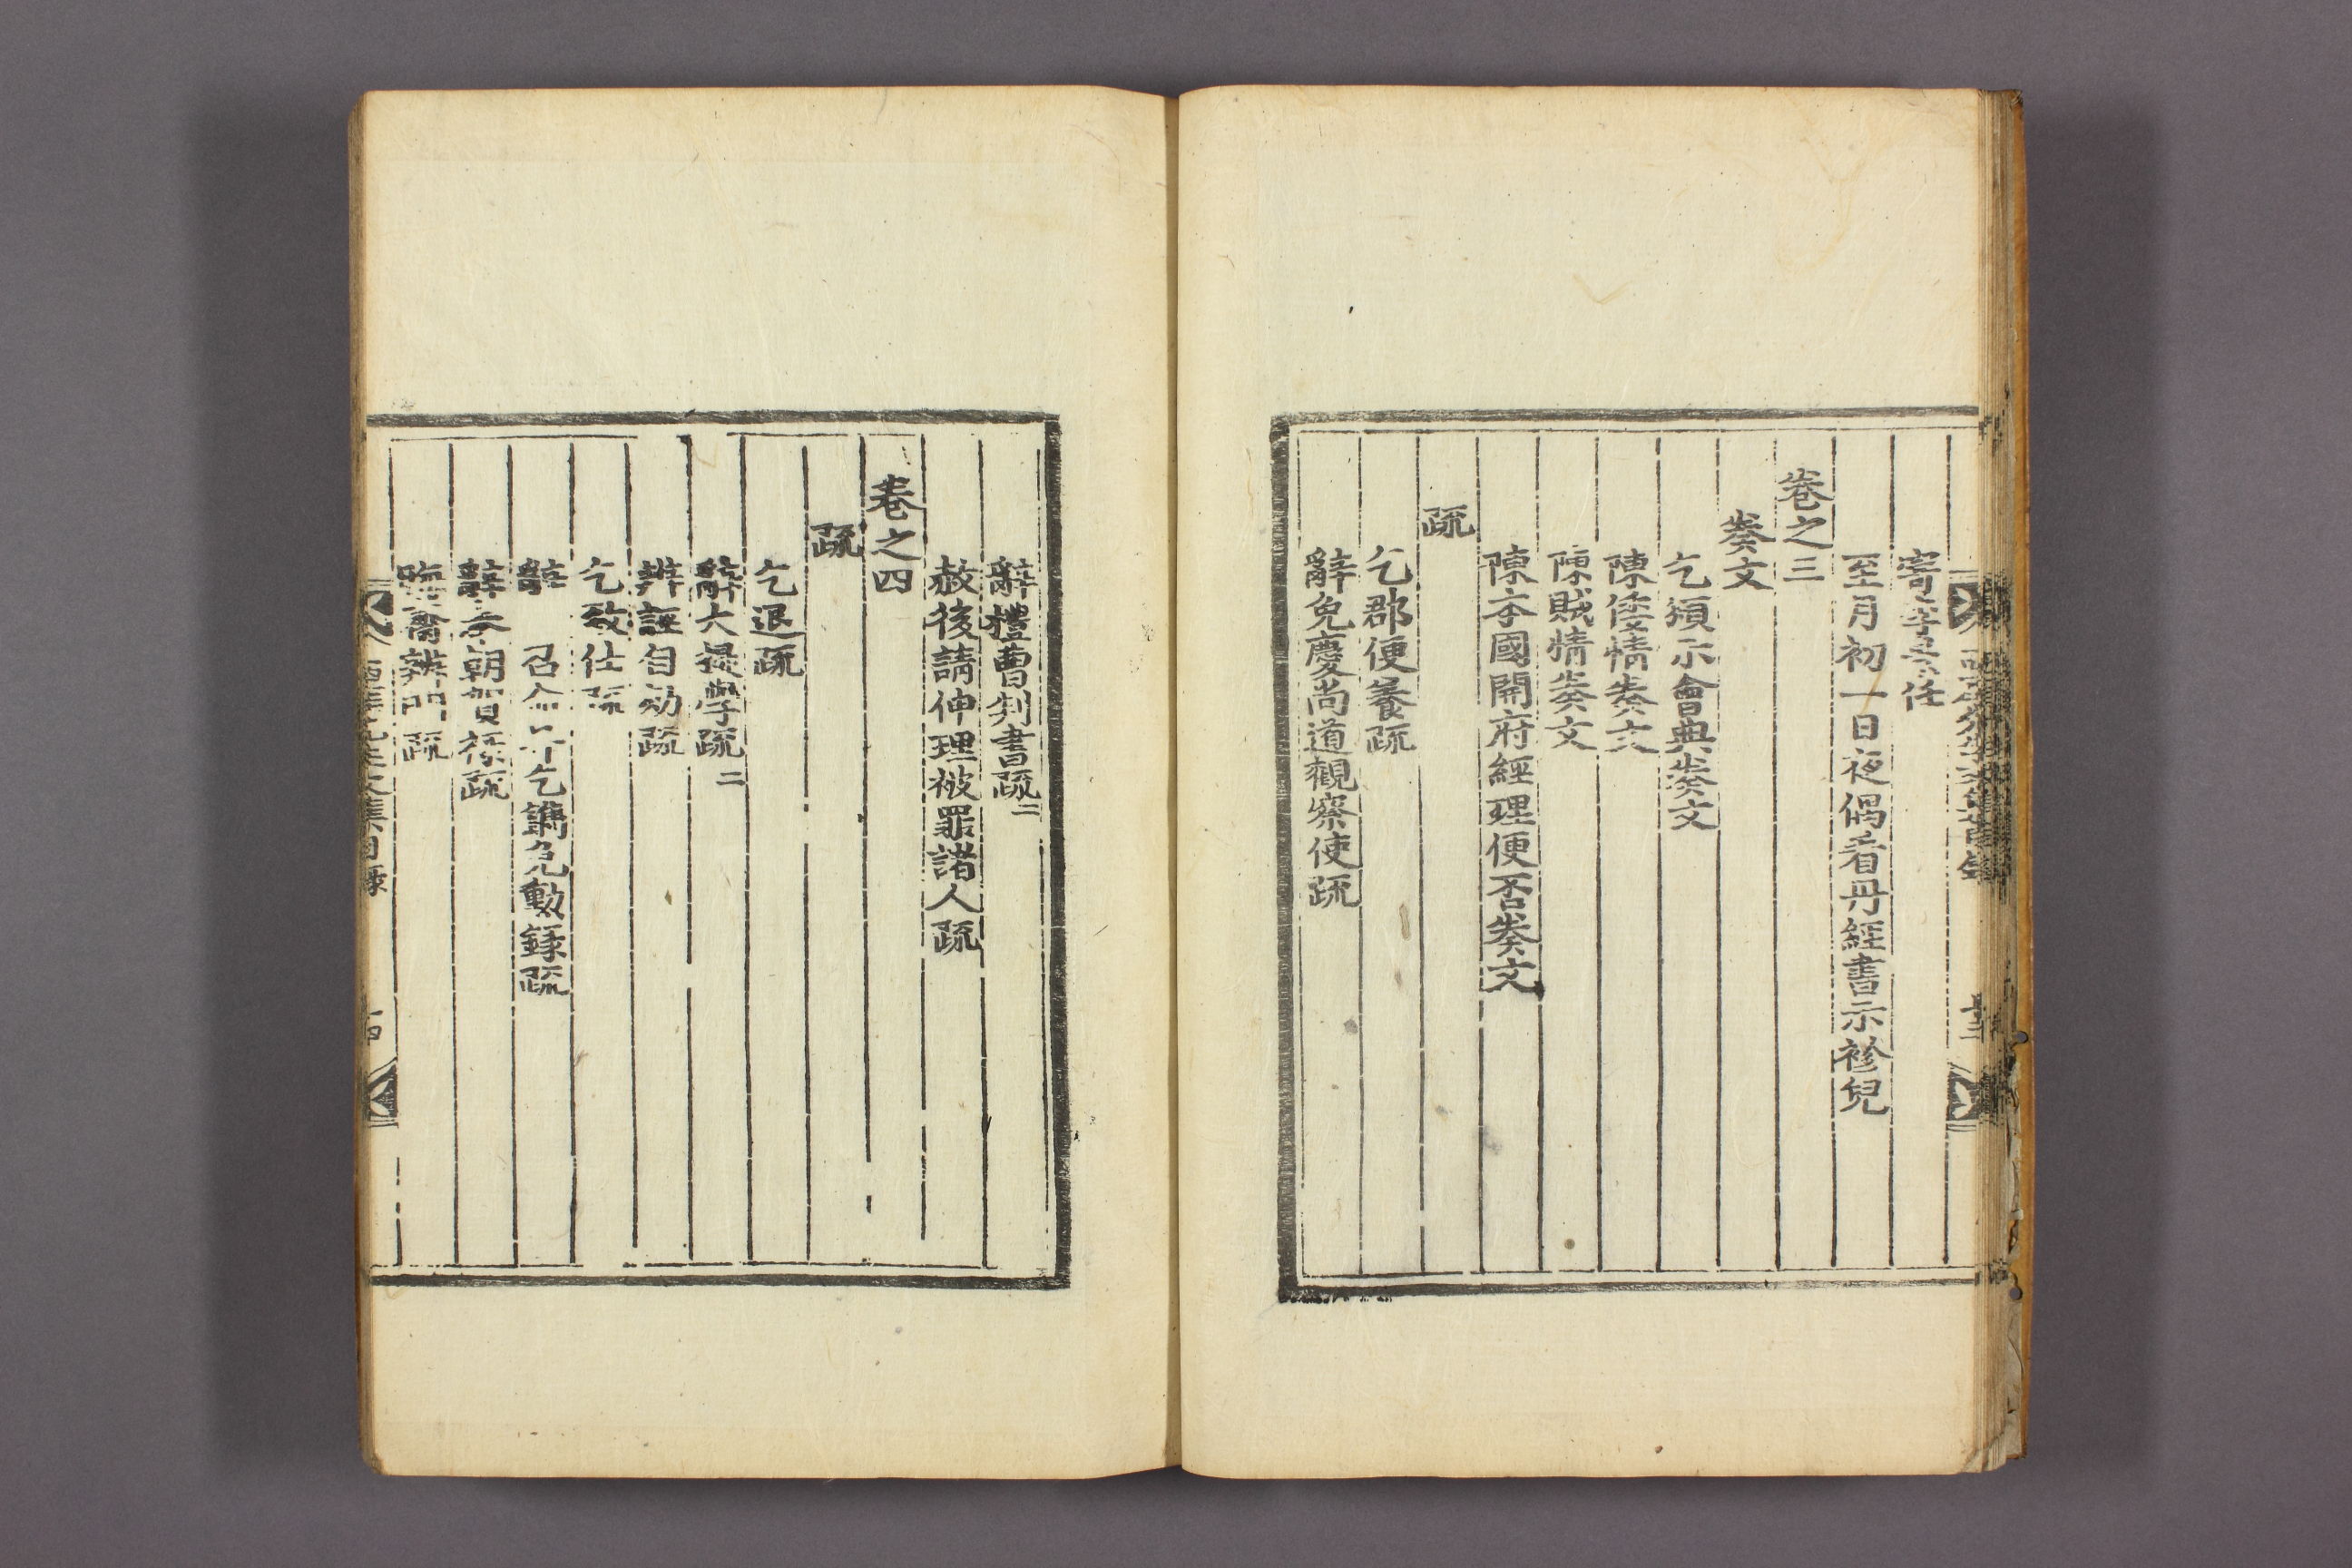 西厓先生文集目錄
十三
寄李景任
至月初一日夜偶看丹經書示袗兒
卷之三
奏文
乞頒示會典奏文
陳倭情奏文
陳賊情奏文
陳本國開府經理便否奏文
疏
乞郡便養疏
辭免慶尚道觀察使疏
辭禮曹判書疏二
赦後請伸理被罪諸人疏
卷之四
疏
乞退疏
辭大提學疏二
辨誣自劾疏
乞致仕疏
辭 召命兼乞鐫免勳錄疏
辭參朝賀祿疏
西厓先生文集目錄
十四